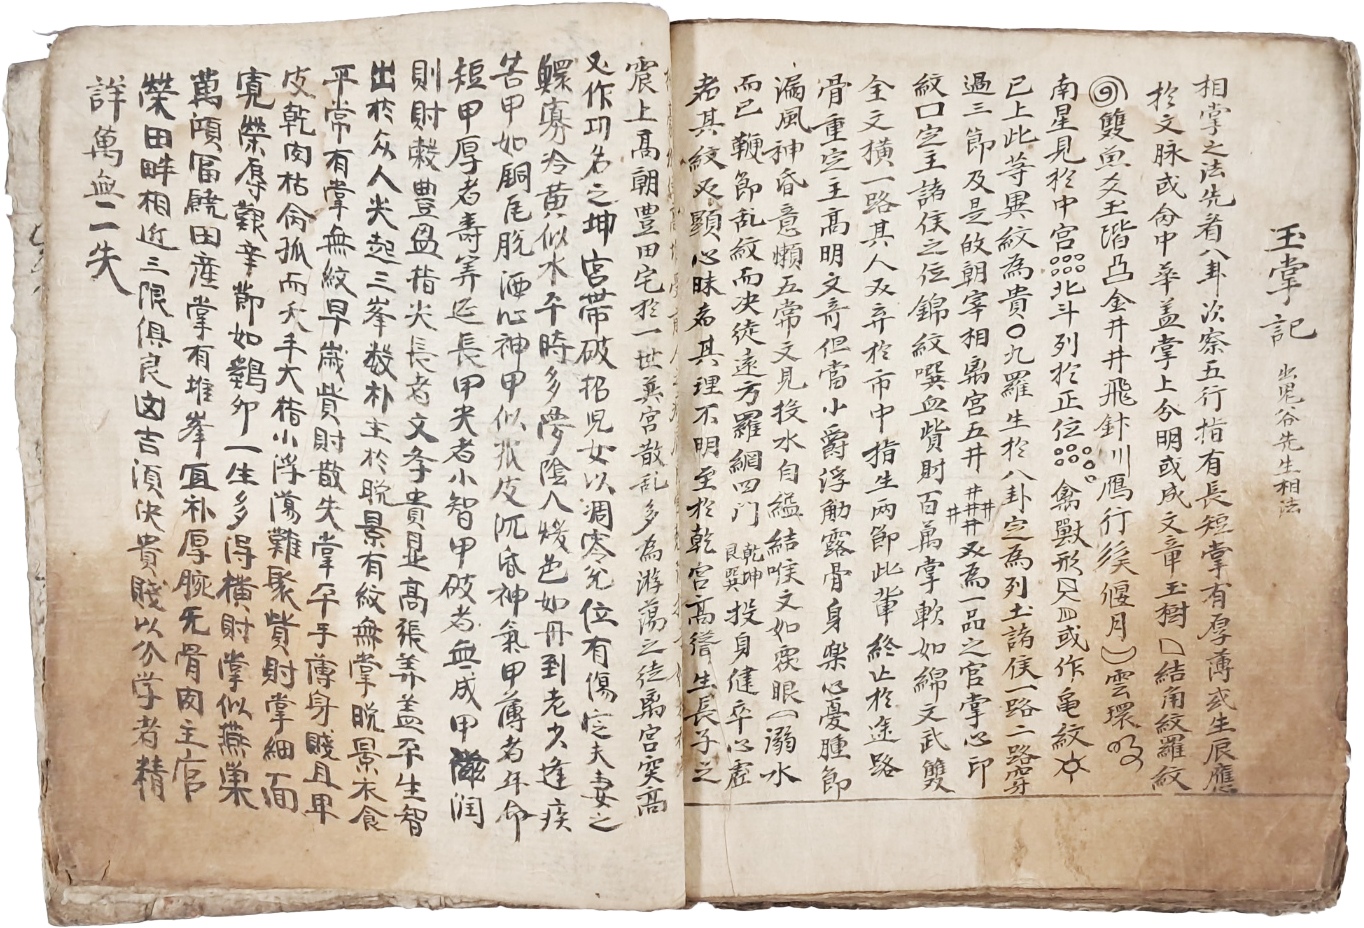 玉掌記 出鬼谷先生相法
相掌之法先看八卦次察五行指有長短掌有厚薄或生辰應
於文脉或侖中華盖掌上分明或成文章玉樹結角紋羅紋
雙魚爻玉階凸金井井飛針川鴈行偃月雲環
南星見於中宮北斗列於正位禽獸形只皿或作亀紋
已上此等異紋為貴九羅生於八卦定為列土諸侯一路二路穿
過三節及是的朝宰相离宮五井井井井井井又為一品之官掌心印
紋口定主諸侯之位錦紋噀血貲財百萬掌軟如綿文武雙
全文橫一路其人又弃於市中指生兩節此輩終止於途路
骨重定主高明文奇但當小爵浮觔露骨身樂心憂腫節
漏風神昏意懶五常文見投水自縊結喉文如猴眼溺水
而已鞭節乱紋而决徒遠方羅網四门乾坤艮巽投身健卒心虛
者其紋又顯心昧者其理不明至於乾宮高聳生長子之
震上高朝豊田宅於一世巽宮散乱多為游蕩之徒离宮突高
又作功名之坤宮帶破招児女以凋零兊位有傷定夫妻之
鰥寡冷黄似水平時多夢陰人煖色如丹到老少逢疾
苦甲如銅瓦脫洒心神甲似瓜皮沉昏神氣甲薄者年命
短甲厚者壽筭延長甲尖者小智甲破者無成甲潤
則財穀豊盈指尖長者文孝貴足高張筭盖平生智
出於众人尖起三峯数朴主於晩景有紋無掌晩景衣食
平常有掌無紋早歲貲財散失掌平手薄身賤且卑
皮乾肉枯侖孤而夭手大指小浮蕩難聚貲財掌細面
寛榮辱艱辛節如鷄卵一生多得橫財掌似燕巢
萬頃富饒田産掌有堆峯宜朴厚腕无骨肉主官
榮田畔相近三限俱良凶吉須决貴賤以分学者精
詳萬無一失